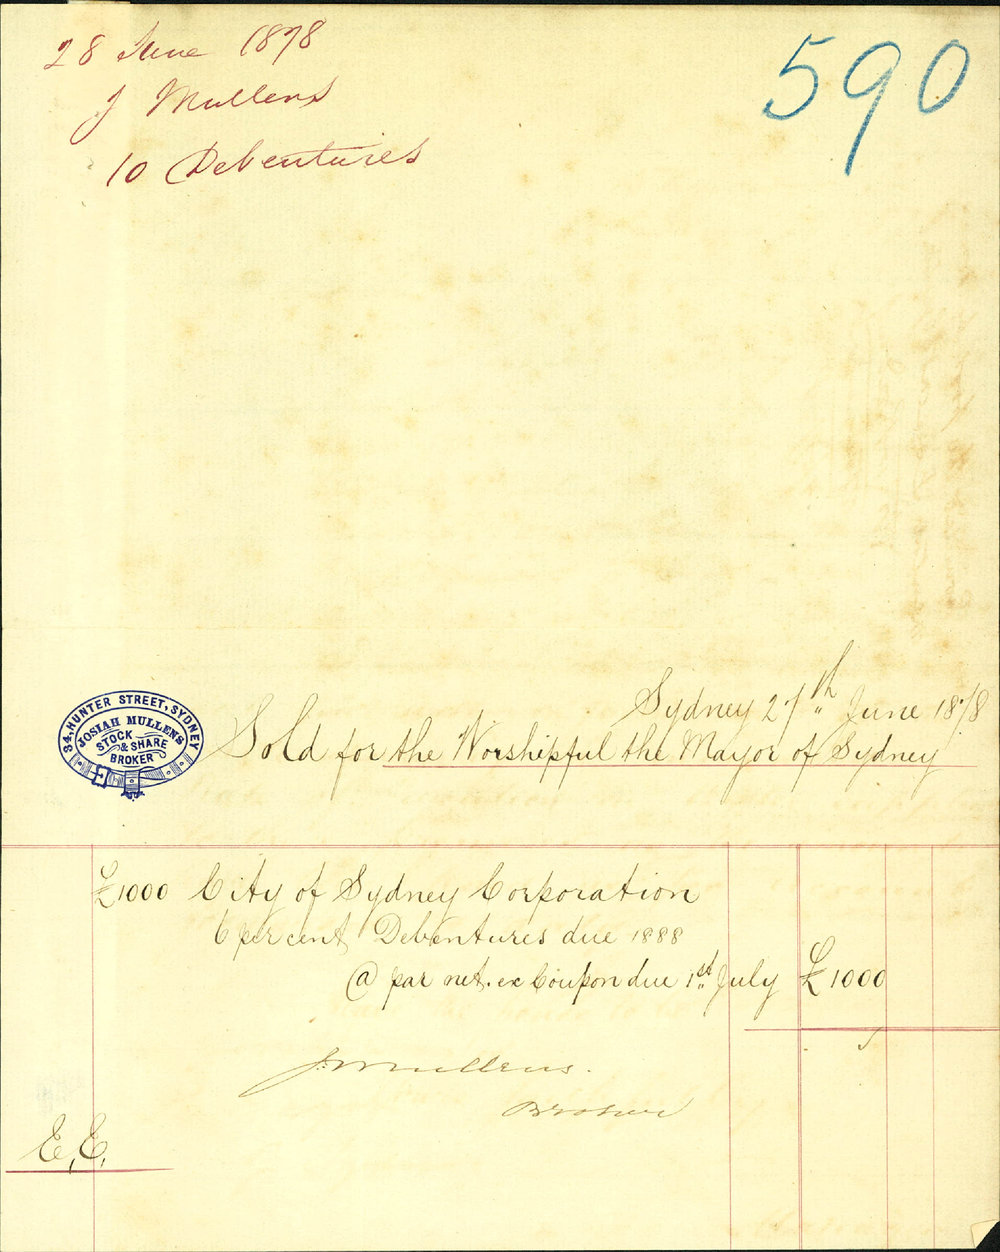 28 June 1878
J Mullens
10 Debentures
590
34, HUNTER STREET, SYDNEY
JOSIAH MULLENS
STOCK
& SHARE
BROKER
Sydney 27th June 1878
Sold for the Worshipful the Mayor of Sydney
£1000 City of Sydney Corporation
6 per cent Debentures due 1888
@ par net. ex Coupon due 1st July £1000
J. Mullens.
Broker
E, E,